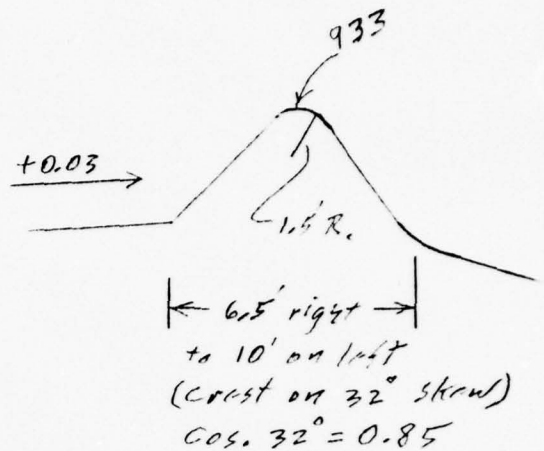 933
+0.03
1.5' R.
6.5' right
to 10' on left
(crest on 32° skew)
Cos. 32° = 0.85